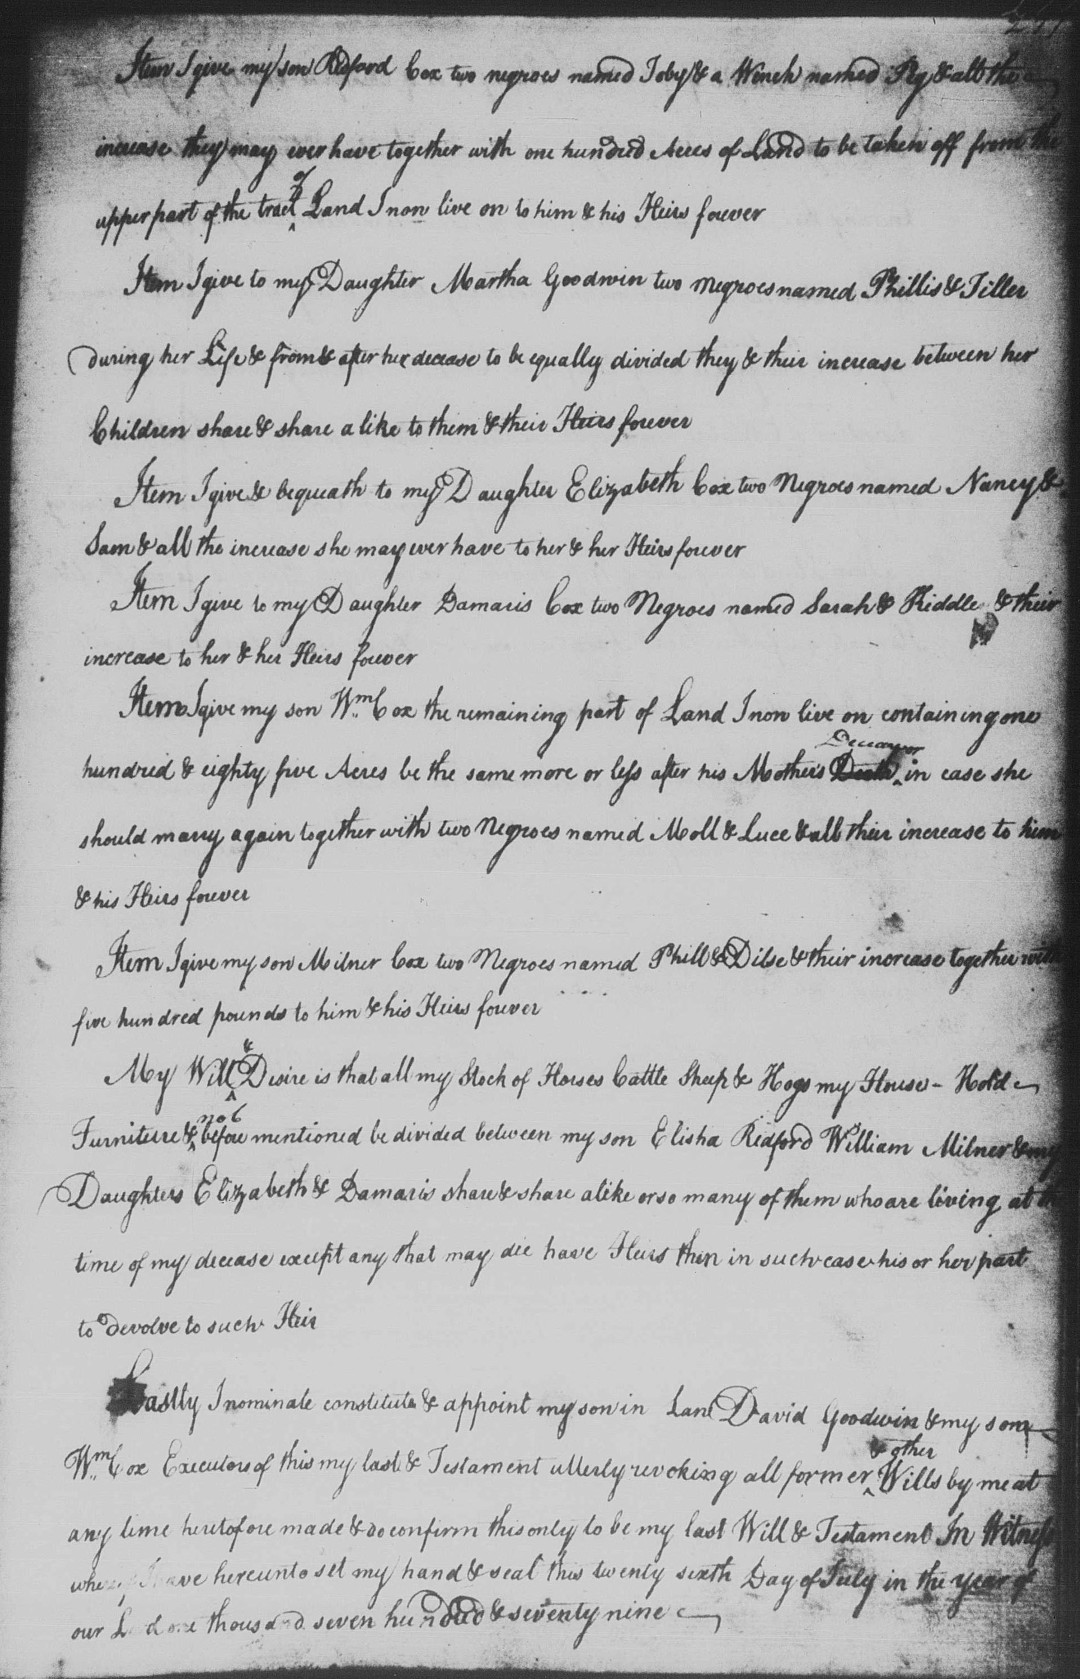 Item I give my son Redford Cox two negroes named Toby & a Winch named Peg & all the
increase they may ever have together with one hundred Acres of Land to be taken off from the
upper part of the tract of Land I now live on to him & his Heirs forever
Item I give to my Daughter Martha Goodwin two negroes named Phillis & Tiller
during her Life & from & after her decease to be equally divided they & their increase between her
Children share & share alike to them & their Heirs forever
Item I give & bequeath to my Daughter Elizabeth Cox two Negroes named Nancy &
Sam & all the increase she may ever have to her & her Heirs forever
Item I give to my Daughter Damaris Cox two Negroes named Sarah & Riddle & their
increase to her & her Heirs forever
Item I give my son Wm. Cox the remaining part of Land I now live on containing one
Decease or
hundred & eighty five Acres be the same more or less after his Mothers Death in case she
should marry again together with two Negroes named Moll & Luce & all their increase to him
& his Heirs forever
Item I give my son Milner Cox two Negroes named Phill & Dilse & their increase together with
five hundred pounds to him & his Heirs forever
My Will & Desire is that all my Stock of Horses Cattle Sheep & Hogs my House - Hold
Furniture & not before mentioned be divided between my son Elisha Redford William Milner & my
Daughters Elizabeth & Damaris share & share alike or so many of them who are living at the
time of my decease except any that may die have Heirs then in such case his or her part
to devolve to such Heir
Lastly I nominate constitute & appoint my son in Law David Goodwin & my son
Wm. Cox Executors of this my last & Testament utterly revoking all former & other Wills by me at
any time heretofore made & do confirm this only to be my last Will & Testament In Witness
whereof I have hereunto set my hand & seal this twenty sixth Day of July in the year of
our Lord one thousand seven hundred & seventy nine